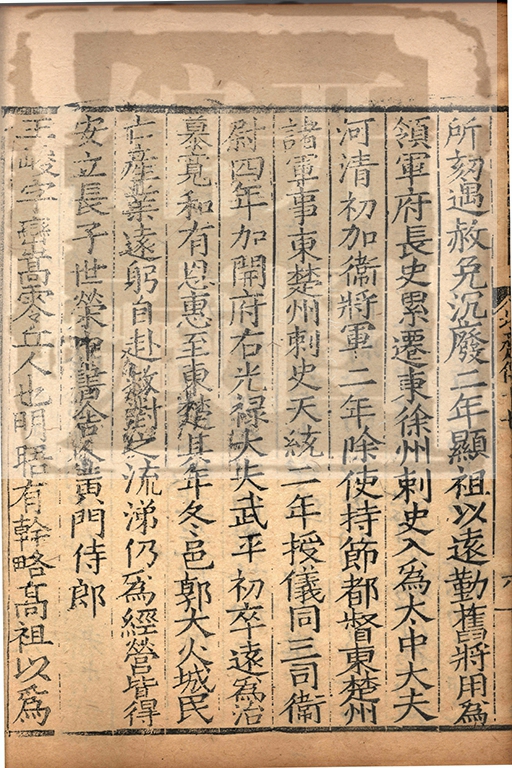 所劾遇赦免沉廢二年顯祖以遠勤舊將用為
領軍府長史累遷東徐州刺史入為太中大夫
河清初加衞將軍二年除使持節都督東楚州
諸軍事東楚州刺史天統二年授儀同三司衞
尉四年加開府右光禄大夫武平初卒遠為治
慕寬和有恩惠至東楚其年冬邑郭大火城民
亡產業遠躬自赴救對之流涕仍為經營皆得
安立長子世榮中書舍人黃門侍郎
王峻字巒嵩零丘人也明晤有幹略高祖以為